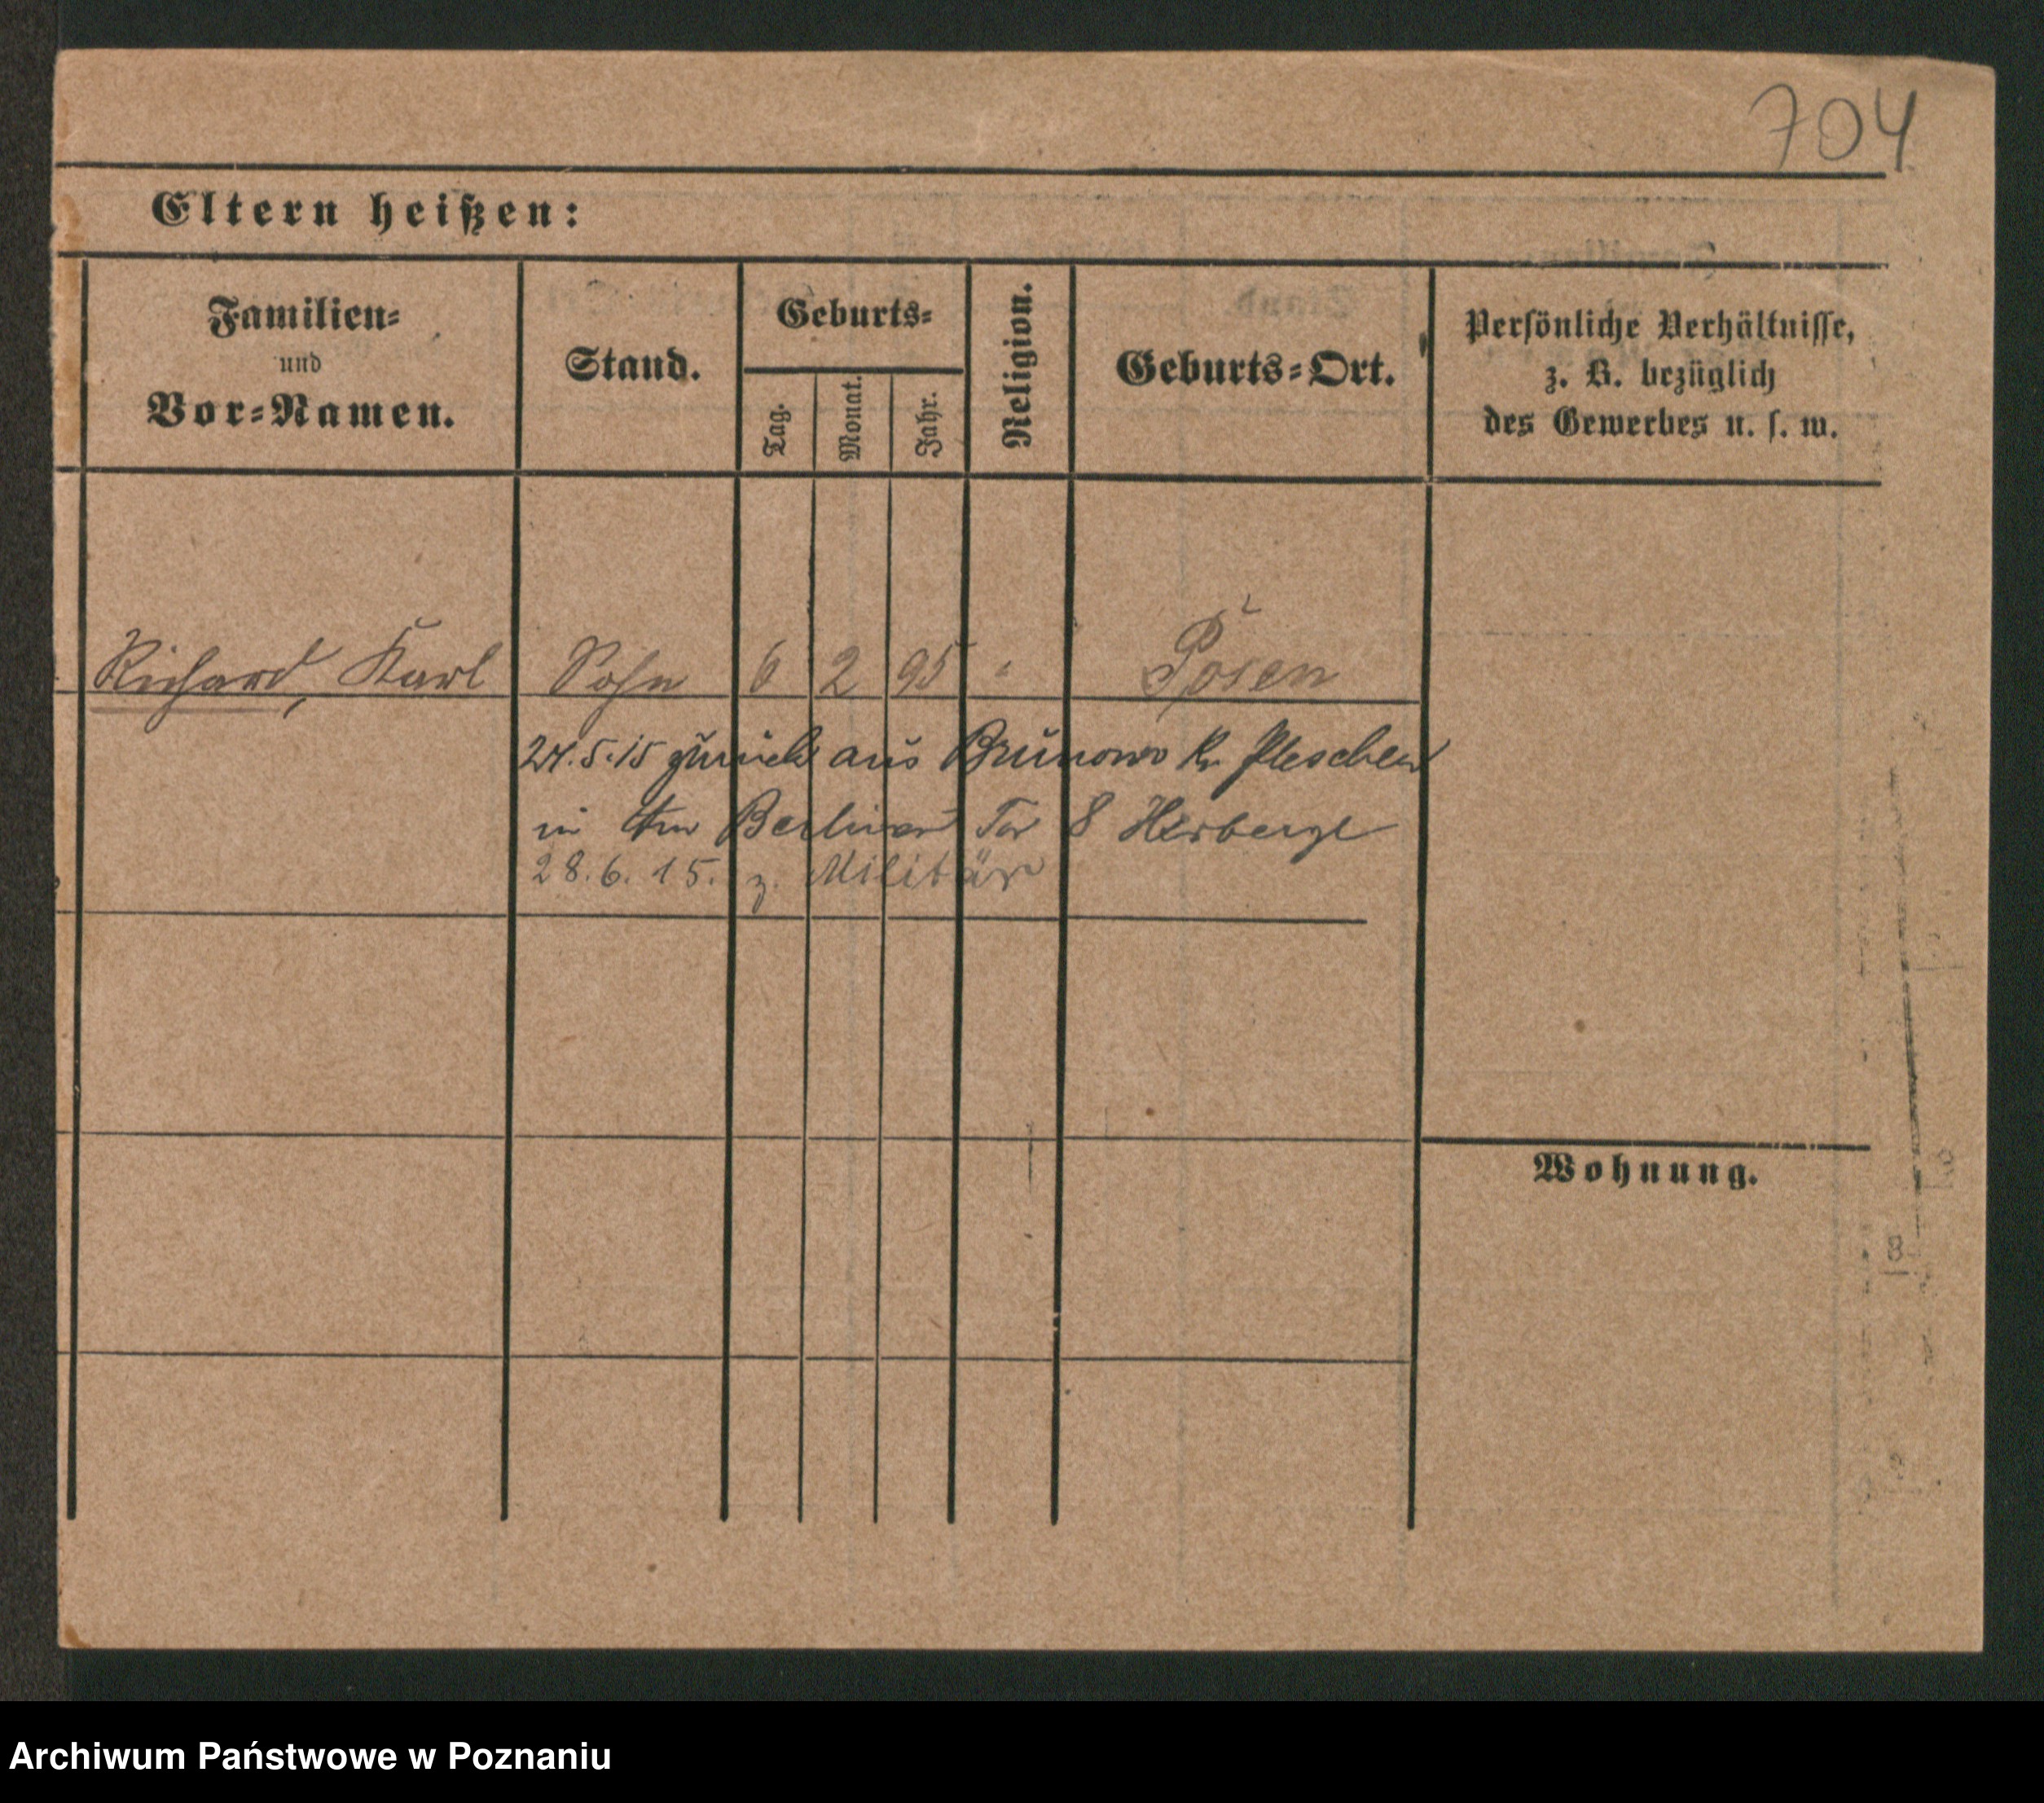 704
Eltern heißen:
Familien-
und
Vor-Namen.
Stand.
Geburts-
Tag.
Monat.
Jahr.
Religion.
Geburts-Ort.
Persönliche Verhältnisse,
z. B. bezüglich
des Gewerbes u. s. w.
Richard, Karl Sohn 6 2 95 " Posen
27.5.15 zurück aus Brunowo Kr. Pleschen
in Berliner Tor 8 Herberge
28.6.15. z. Militär
Wohnung.
8
Archiwum Państwowe w Poznaniu